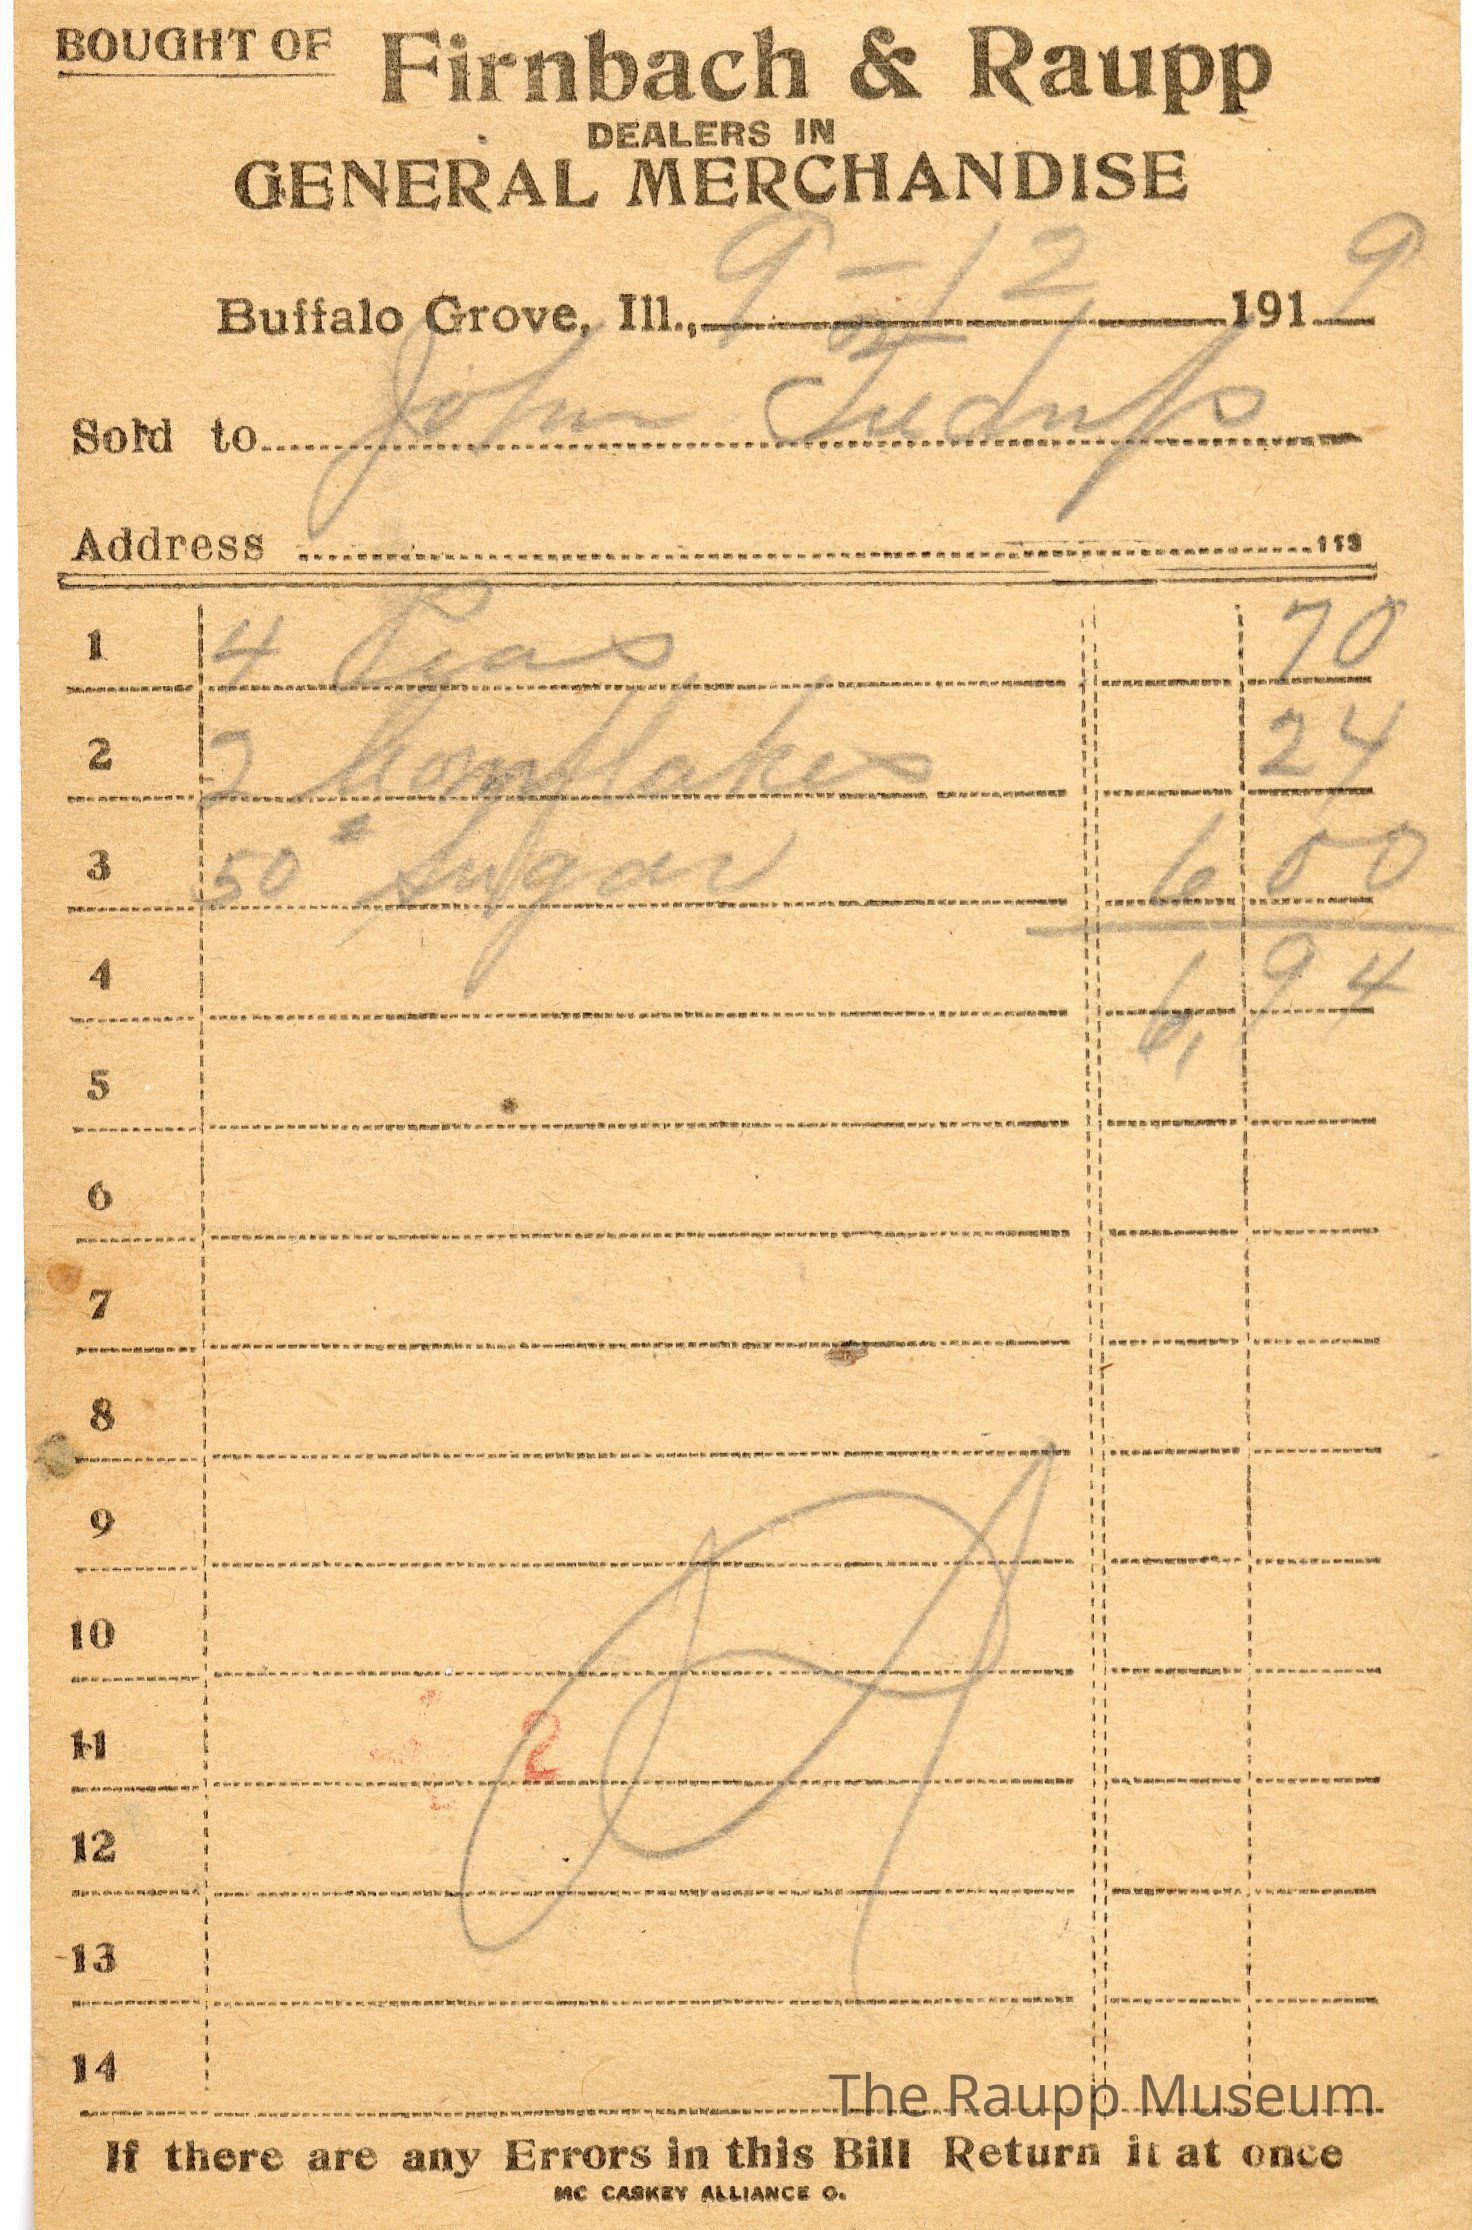 BOUGHT OF Firnbach & Raupp
DEALERS IN
GENERAL MERCHANDISE
Buffalo Grove, Ill., 9-12 1919
Sold to John
Address 113
1 4 Peas 70
2 2 Cornflakes 24
3 50# Sugar 6 00
4 6,94
5
6
7
8
9
10
11 2
12
13
14
The Raupp Museum
If there are any Errors in this Bill Return it at once
MC CASKEY ALLIANCE O.